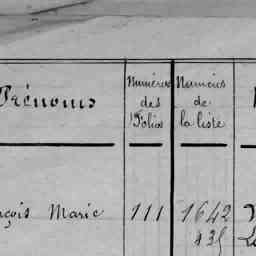 Prénoms
Numéros
des
Folios
Numéros
de
la liste
nçois Marie
111
1642
435